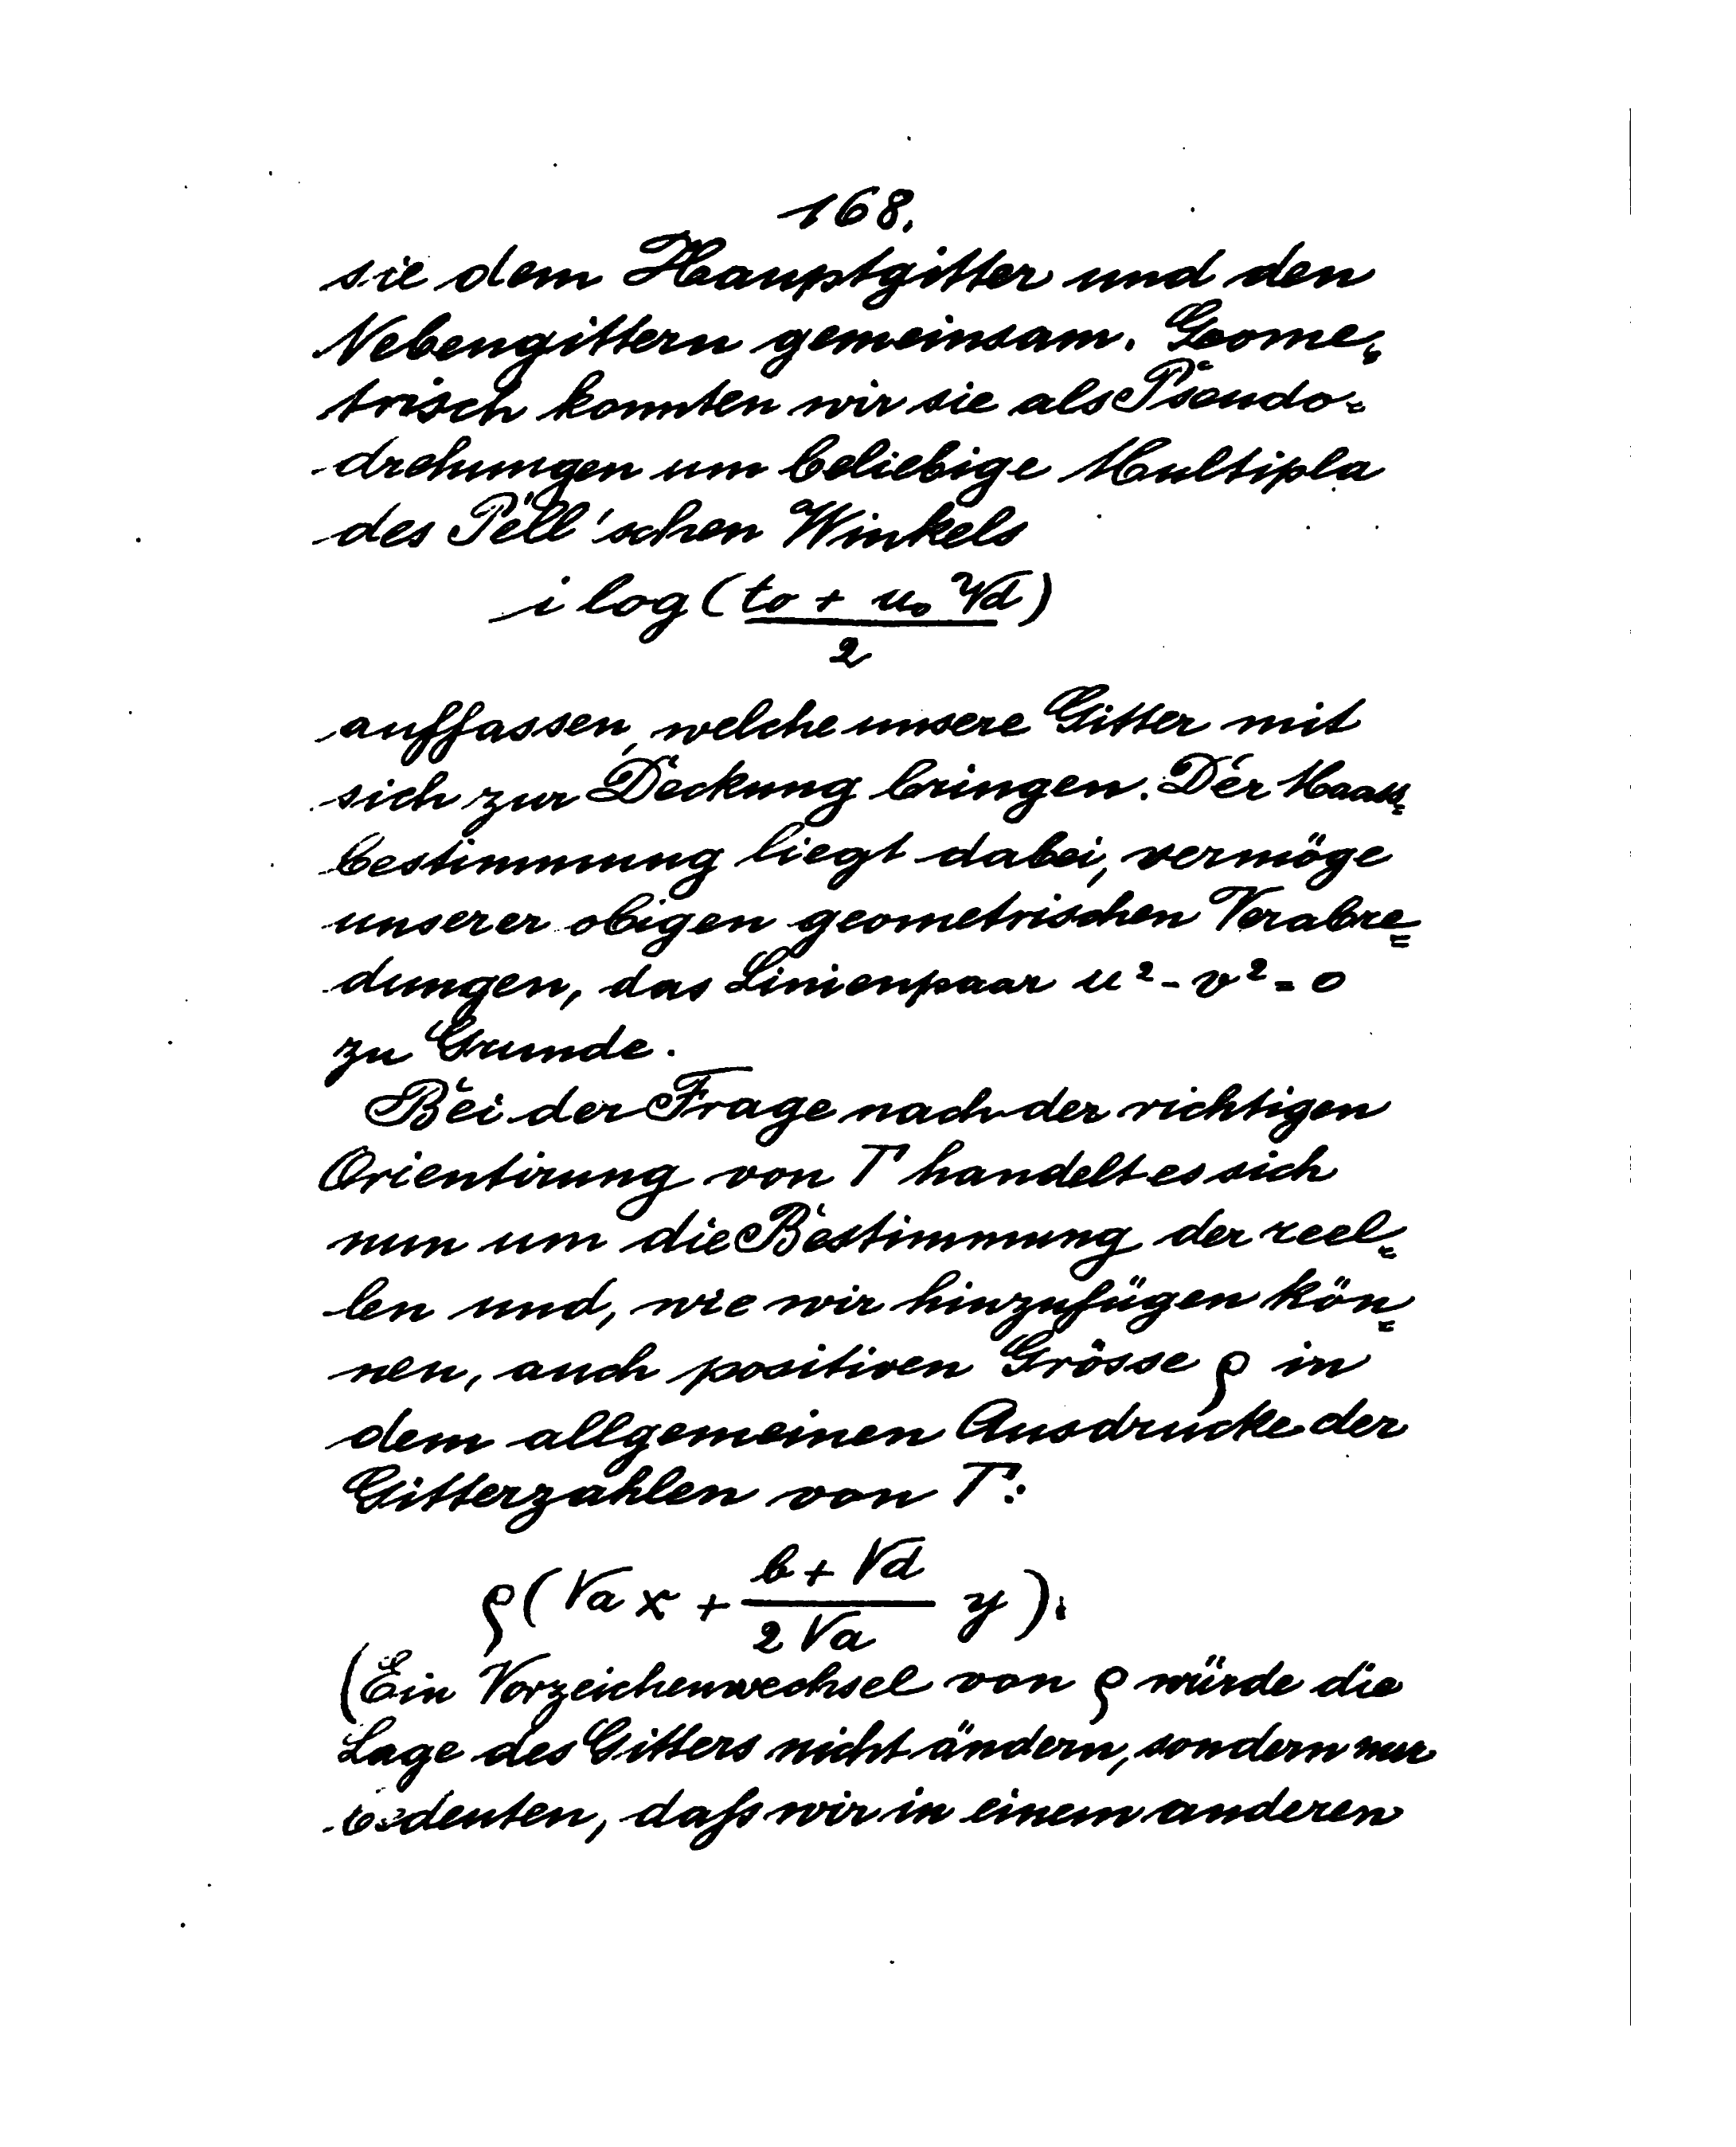 168.
sie dem Hauptgitter und den
Nebengittern gemeinsam. Geome=
trisch konnten wir sie als Pseudo=
drehungen um beliebige Multipla
des Pell'schen Winkels
i log (t₀ + u₀ √d)
2
auffassen, welche unsere Gitter mit
sich zur Deckung bringen. Der Maass=
bestimmung liegt dabei, vermöge
unserer obigen geometrischen Verabre=
dungen, das Linienpaar u² - v² = 0
zu Grunde.
Bei der Frage nach der richtigen
Orientirung von T handelt es sich
nun um die Bestimmung der reel=
len und, wie wir hinzufügen kön=
nen, auch positiven Grösse ρ in
dem allgemeinen Ausdrucke der
Gitterzahlen von T:
ρ(√a x + (b + √d)/(2√a) y).
(Ein Vorzeichenwechsel von ρ würde die
Lage des Gitters nicht ändern, sondern nur
bedeuten, daſs wir in einem anderen